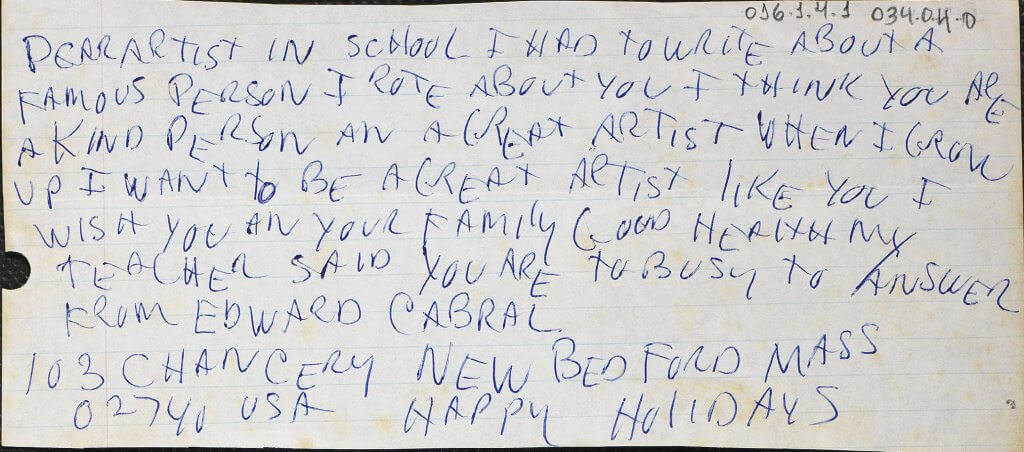 016.1.4.1 034.04-0
DEAR ARTIST IN SCHOOL I HAD TO WRITE ABOUT A
FAMOUS PERSON I ROTE ABOUT YOU I THINK YOU ARE
A KIND PERSON AN A GREAT ARTIST WHEN I GROW
UP I WANT TO BE A GREAT ARTIST LIKE YOU I
WISH YOU AN YOUR FAMILY GOOD HEALTH MY
TEACHER SAID YOU ARE TO BUSY TO ANSWER
FROM EDWARD CABRAL
103 CHANCERY NEW BEDFORD MASS
02740 USA HAPPY HOLIDAYS